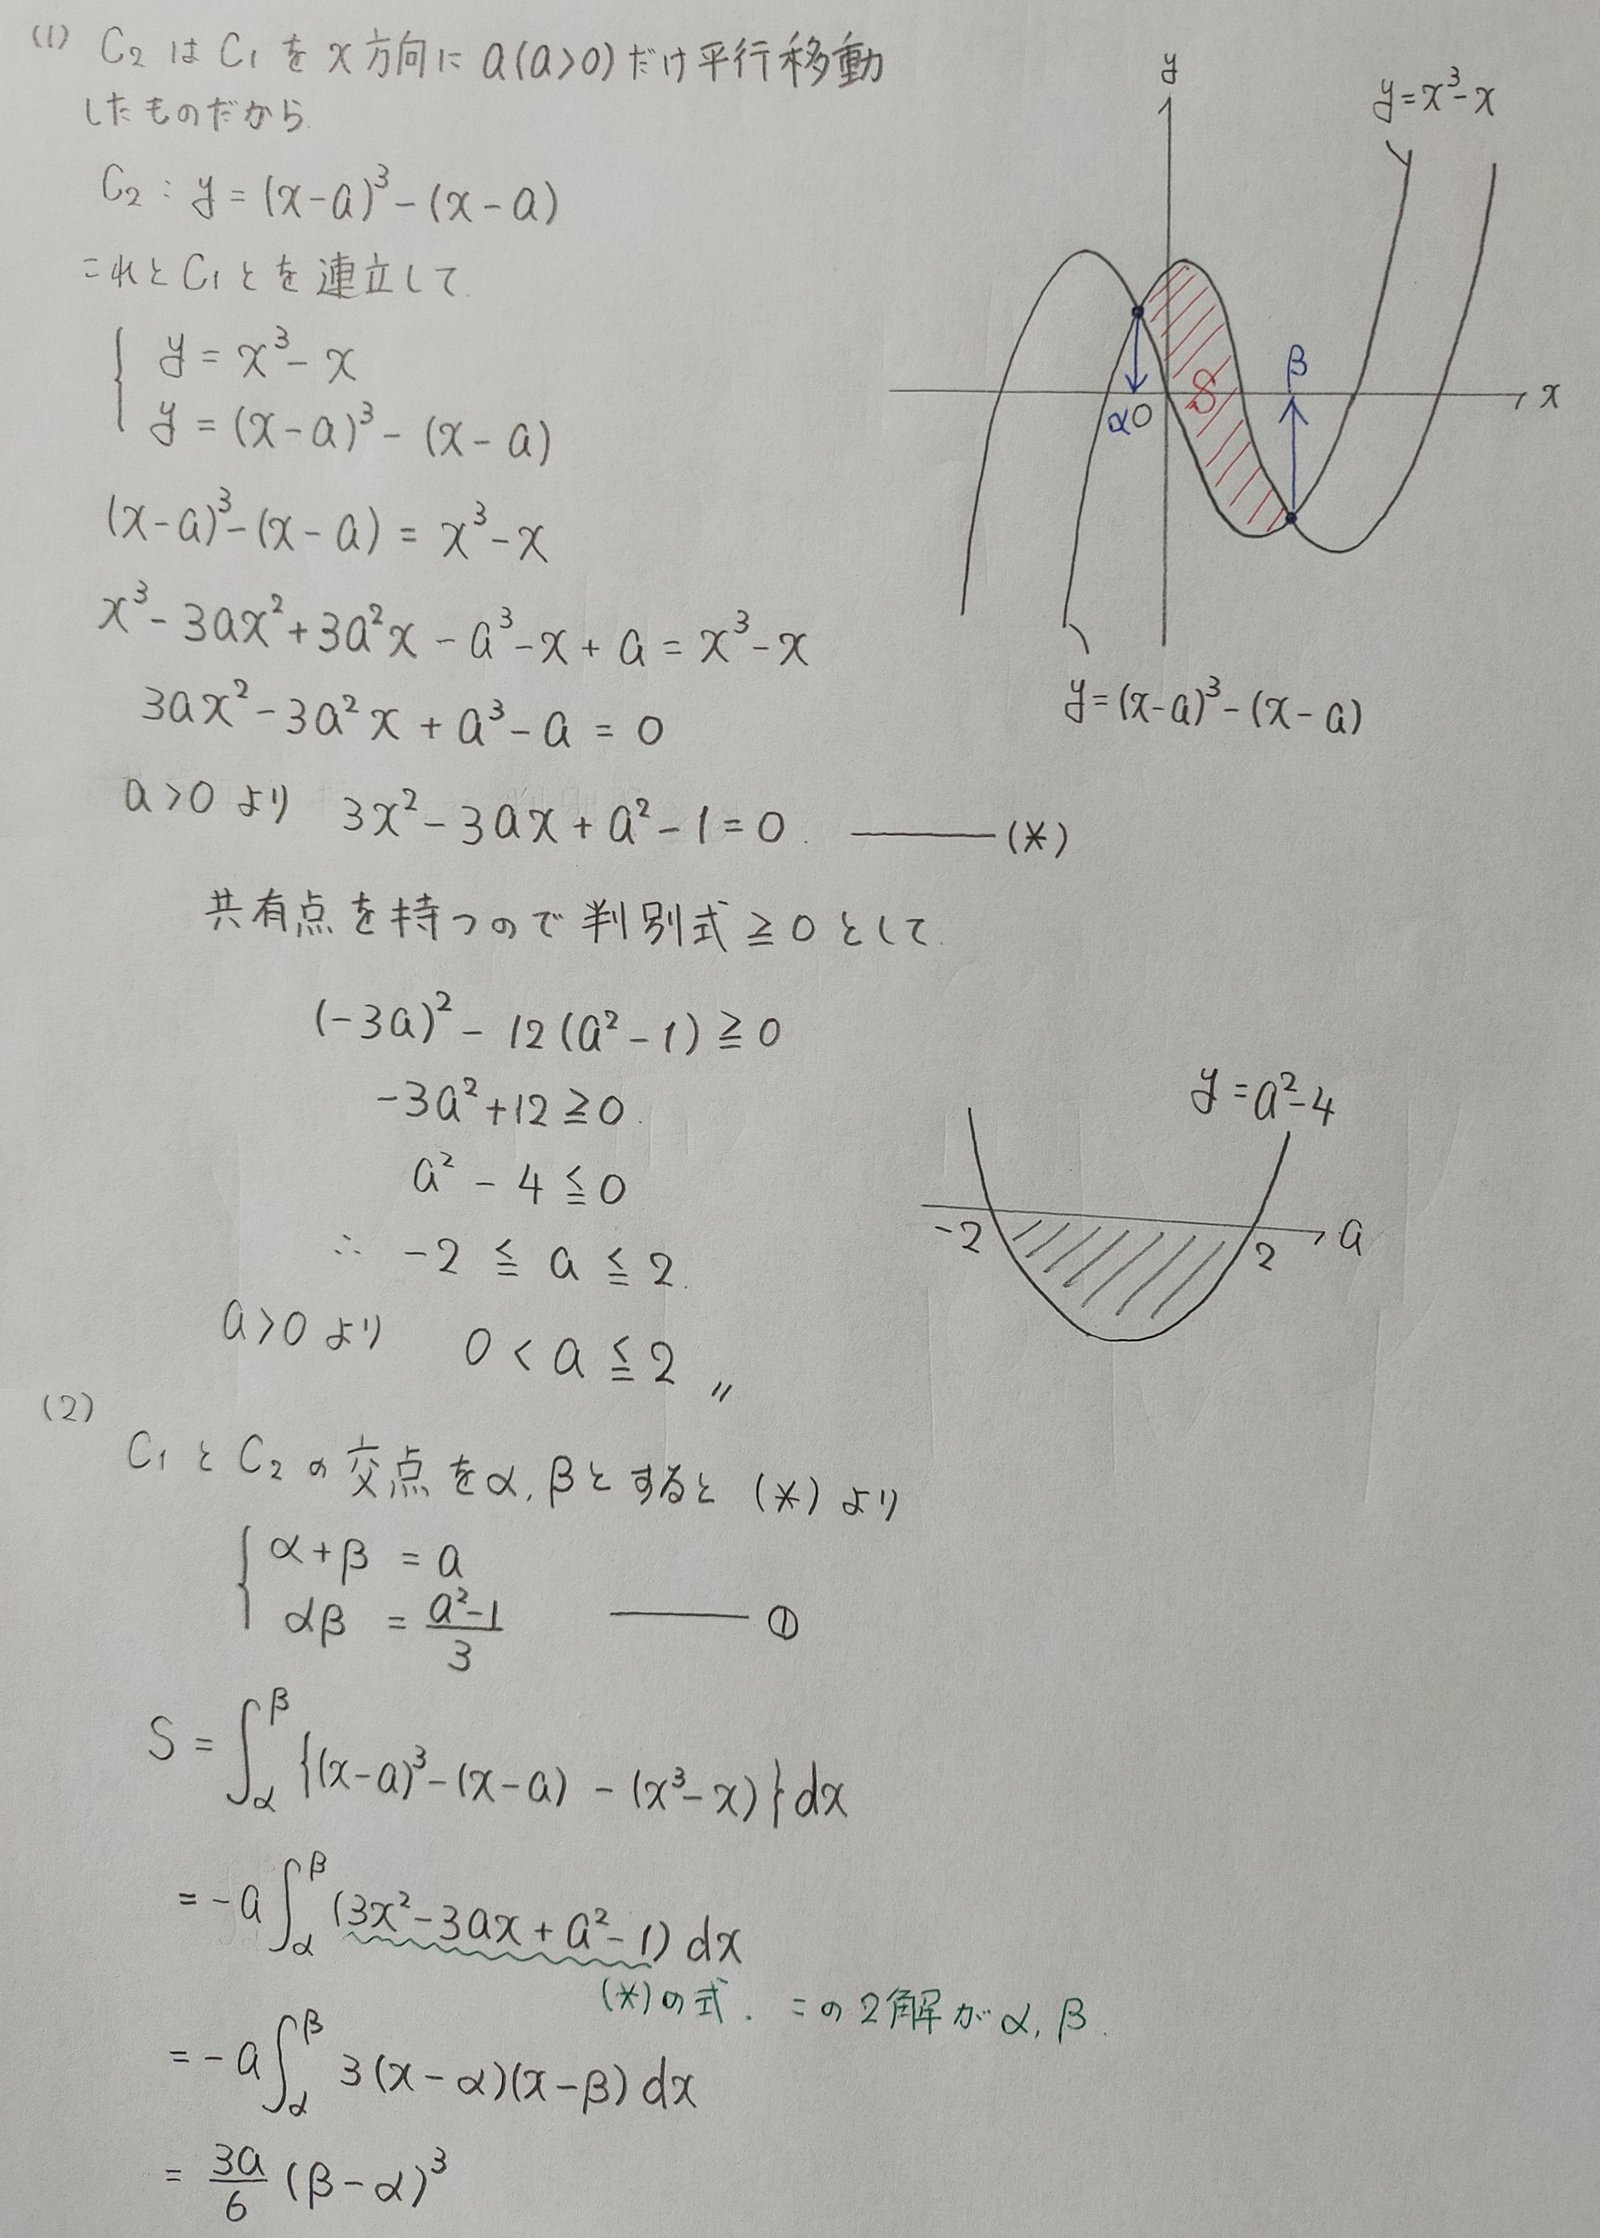 (1) C₂はC₁をx方向にa(a>0)だけ平行移動
したものだから
C₂ : y = (x-a)³-(x-a)
これとC₁とを連立して
y = x³-x
y = (x-a)³-(x-a)
(x-a)³-(x-a) = x³-x
x³-3ax²+3a²x-a³-x+a = x³-x
3ax²-3a²x+a³-a = 0
a>0より 3x²-3ax+a²-1=0 ——— (*)
共有点を持つので判別式≧0として
(-3a)²-12(a²-1)≧0
-3a²+12≧0
a²-4≦0
∴ -2≦a≦2
a>0より 0<a≦2 〃
y
y=x³-x
β
x
α
O
S
y=(x-a)³-(x-a)
y=a²-4
-2
2
a
(2)
C₁とC₂の交点をα,βとすると(*)より
α+β = a
αβ = (a²-1)/3 ——— ①
S = ∫_α^β {(x-a)³-(x-a)-(x³-x)}dx
= -a∫_α^β (3x²-3ax+a²-1)dx
(*)の式. この2解がα,β.
= -a∫_α^β 3(x-α)(x-β)dx
= 3a/6 (β-α)³